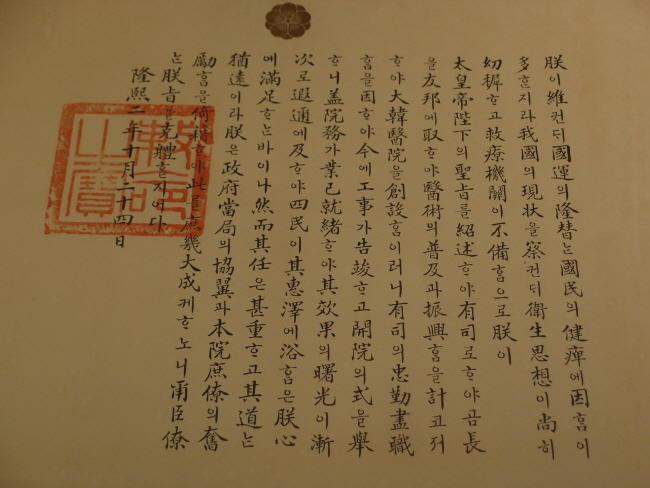 朕이維컨되國運의隆替는國民의健痺에因홈이
多혼지라我國의現状을察컨되衛生思想이尙히
幼穉ᄒᆞ고救療機關이不備홈으로朕이
太皇帝陛下의聖旨를紹述ᄒᆞ야有司로ᄒᆞ야곰長
을友邦에取ᄒᆞ야醫術의普及과振興홈을計코져
ᄒᆞ야大韓醫院을創設홈이러니有司의忠勤盡職
홈을因ᄒᆞ야今에工事가告竣ᄒᆞ고開院의式을擧
ᄒᆞ니盖院務가業已就緖ᄒᆞ야其效果의曙光이漸
次로遐邇에及ᄒᆞ야四民이其惠澤에浴홈은朕心
에滿足ᄒᆞ는바이나然而其任은甚重ᄒᆞ고其道는
猶遠이라朕은政府當局의協翼과本院庶僚의奮
勵홈을倚賴ᄒᆞ야此를庶幾大成케ᄒᆞ노니爾臣僚
는朕旨를克軆홀지어다
隆熙二年十月二十四日
勅命之寶